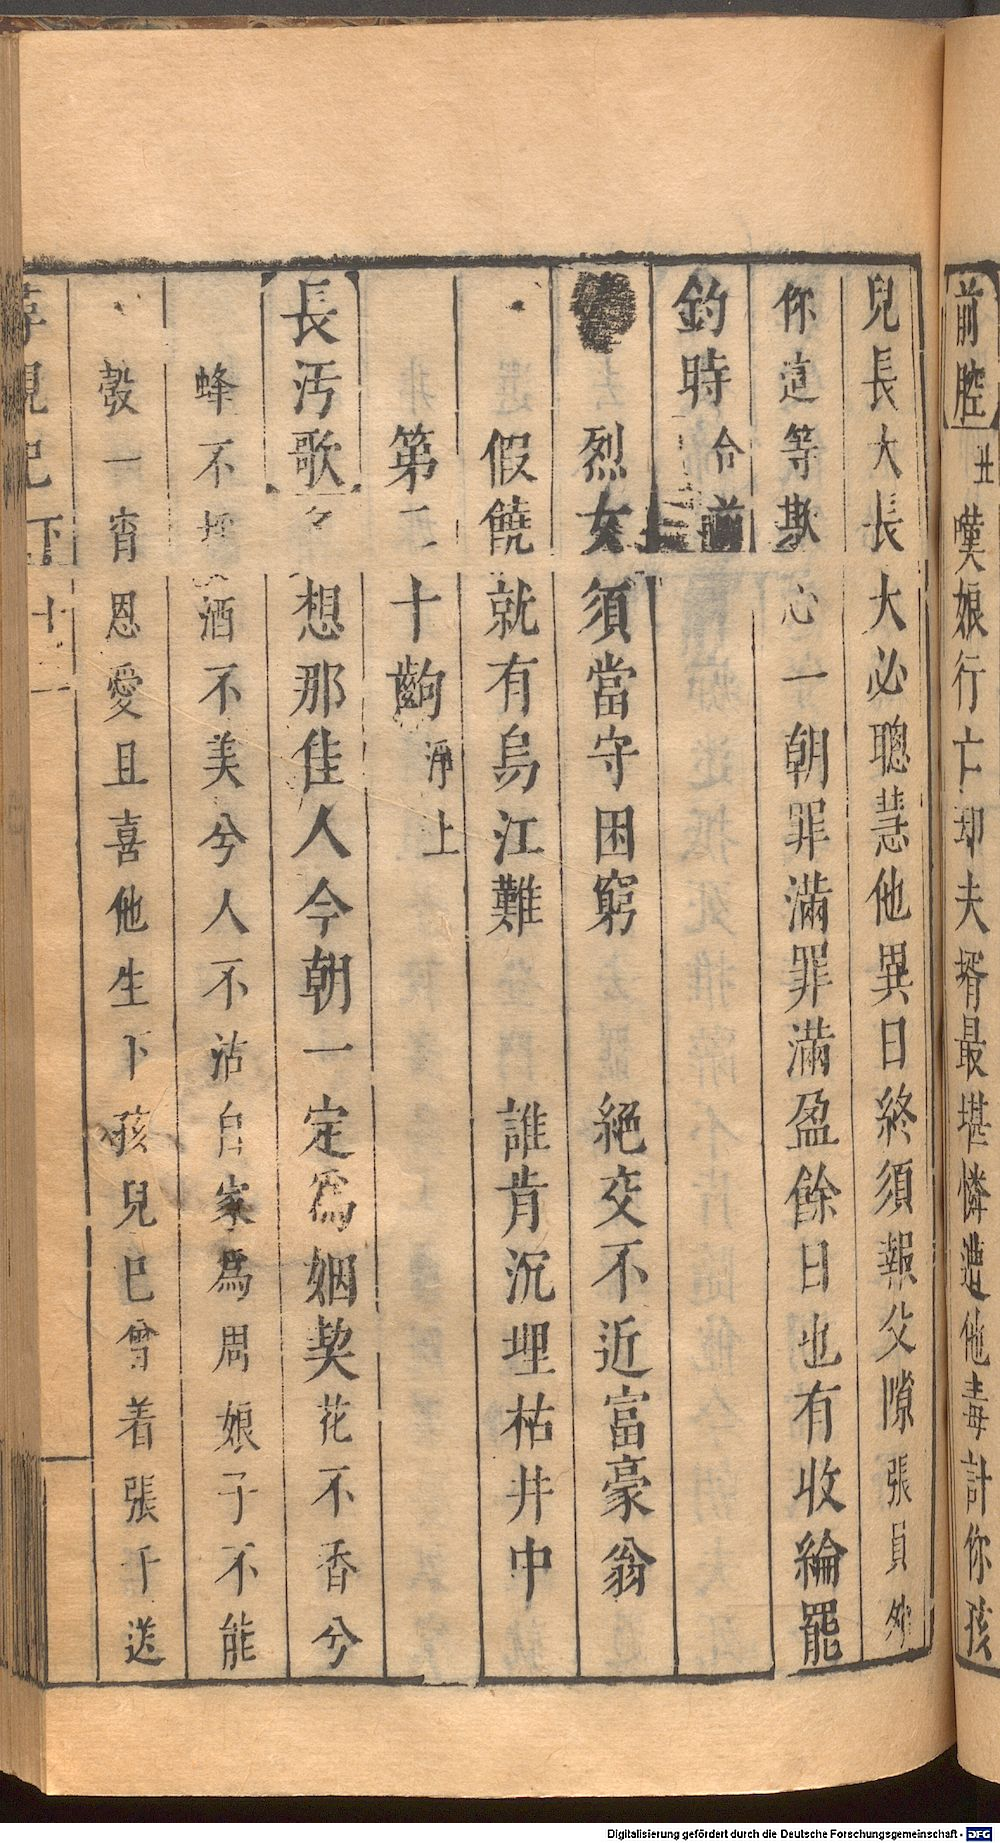 前腔 丑 嘆娘行亡却夫壻最堪憐遭他毒計你孩
兒長大長大必聰慧他異日終須報父隙 張員外
你這等欺心 一朝罪滿罪滿盈餘日也有收綸罷
釣時 合前
烈女須當守困窮 絕交不近富豪翁
假饒就有烏江難 誰肯沉埋枯井中
第二十齣 淨上
長汚歌 想那佳人今朝一定爲姻契花不香兮
蜂不 酒不美兮人不沾自家爲周娘子不能
彀一宵恩愛且喜他生下孩兒已曾着張千送
孝親記下 十二
Digitalisierung gefördert durch die Deutsche Forschungsgemeinschaft - DFG